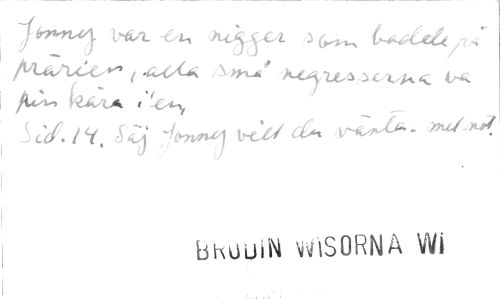 Jonny var en nigger som badele på
prärien, alla små negresserna va
pin kära i'en,
Sid. 14. Säj Jonny vill du vänta. mel. not.
BRODIN WISORNA WI